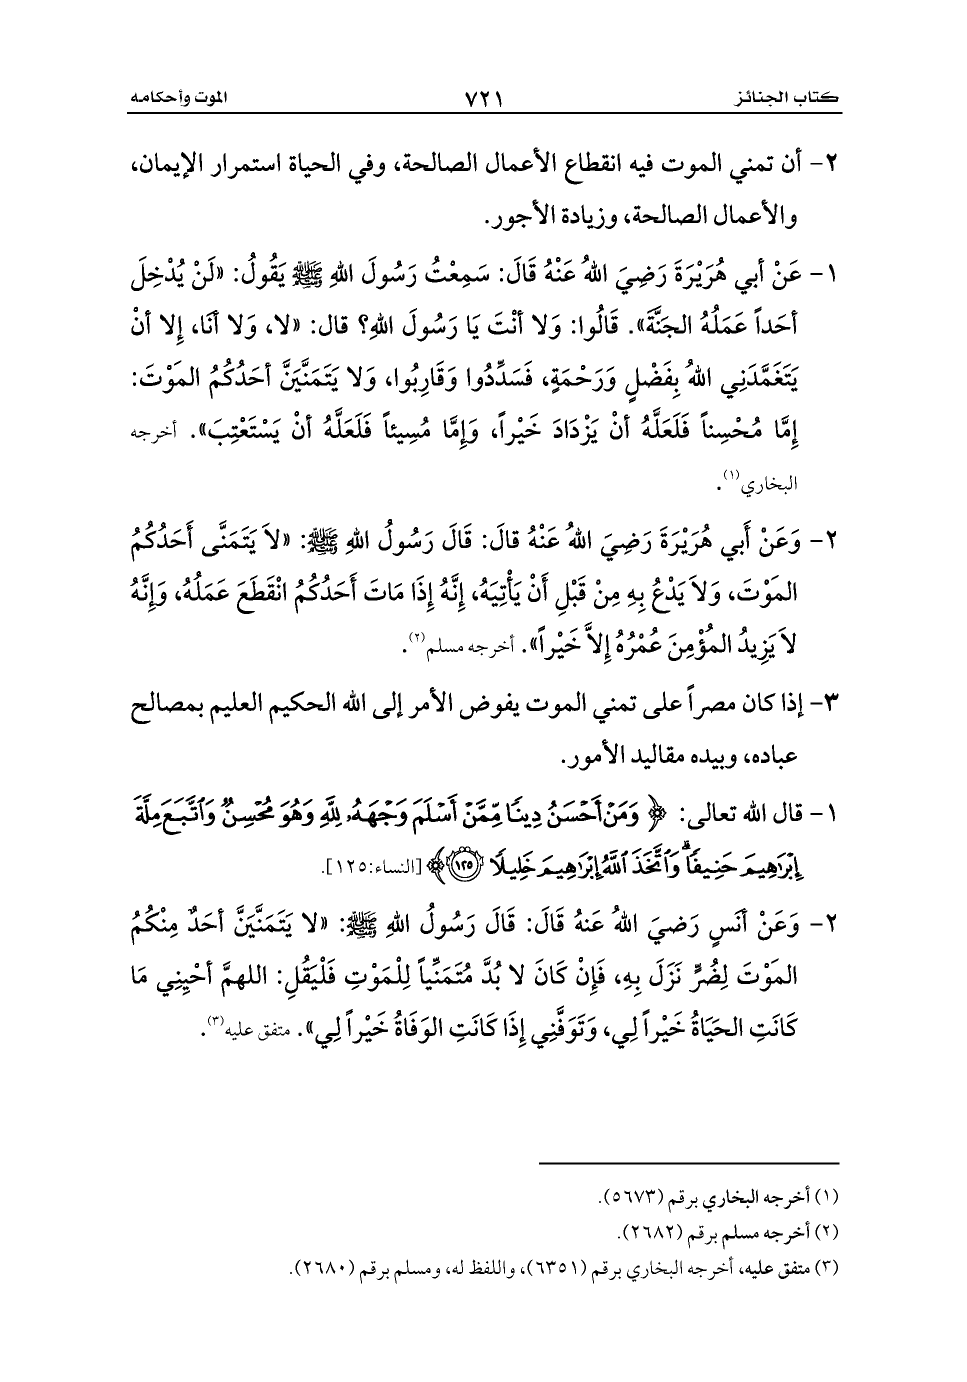 كتاب الجنائز ٧٢١ الموت وأحكامه
٢- أن تمني الموت فيه انقطاع الأعمال الصالحة، وفي الحياة استمرار الإيمان،
والأعمال الصالحة، وزيادة الأجور.
١- عَنْ أبي هُرَيْرَةَ رَضِيَ اللهُ عَنْهُ قَالَ: سَمِعْتُ رَسُولَ اللهِ ﷺ يَقُولُ: «لَنْ يُدْخِلَ
أحَداً عَمَلُهُ الجَنَّةَ». قَالُوا: وَلا أنْتَ يَا رَسُولَ اللهِ؟ قال: «لا، وَلا أنَا، إلا أنْ
يَتَغَمَّدَنِي اللهُ بِفَضْلٍ وَرَحْمَةٍ، فَسَدِّدُوا وَقَارِبُوا، وَلا يَتَمَنَّيَنَّ أحَدُكُمُ المَوْتَ:
إمَّا مُحْسِناً فَلَعَلَّهُ أنْ يَزْدَادَ خَيْراً، وَإمَّا مُسِيئاً فَلَعَلَّهُ أنْ يَسْتَعْتِبَ». أخرجه
البخاري(١).
٢- وَعَنْ أَبي هُرَيْرَةَ رَضِيَ اللهُ عَنْهُ قالَ: قَالَ رَسُولُ اللهِ ﷺ: «لاَ يَتَمَنَّى أَحَدُكُمُ
المَوْتَ، وَلاَ يَدْعُ بِهِ مِنْ قَبْلِ أَنْ يَأْتِيَهُ، إنَّهُ إذَا مَاتَ أَحَدُكُمُ انْقَطَعَ عَمَلُهُ، وَإنَّهُ
لاَ يَزِيدُ المُؤْمِنَ عُمْرُهُ إلاَّ خَيْراً». أخرجه مسلم(٢).
٣- إذا كان مصراً على تمني الموت يفوض الأمر إلى الله الحكيم العليم بمصالح
عباده، وبيده مقاليد الأمور.
١- قال الله تعالى: ﴿ وَمَنْ أَحْسَنُ دِينًا مِّمَّنْ أَسْلَمَ وَجْهَهُۥ لِلَّهِ وَهُوَ مُحْسِنٌ وَٱتَّبَعَ مِلَّةَ
إِبْرَٰهِيمَ حَنِيفًاۗ وَٱتَّخَذَ ٱللَّهُ إِبْرَٰهِيمَ خَلِيلًا ١٢٥﴾ [النساء:١٢٥].
٢- وَعَنْ أنَسٍ رَضيَ اللهُ عَنهُ قَالَ: قَالَ رَسُولُ اللهِ ﷺ: «لا يَتَمَنَّيَنَّ أحَدٌ مِنْكُمُ
المَوْتَ لِضُرٍّ نَزَلَ بِهِ، فَإنْ كَانَ لا بُدَّ مُتَمَنِّياً لِلْمَوْتِ فَلْيَقُلِ: اللهمَّ أحْيِنِي مَا
كَانَتِ الحَيَاةُ خَيْراً لِي، وَتَوَفَّنِي إذَا كَانَتِ الوَفَاةُ خَيْراً لِي». متفق عليه(٣).
(١) أخرجه البخاري برقم (٥٦٧٣).
(٢) أخرجه مسلم برقم (٢٦٨٢).
(٣) متفق عليه، أخرجه البخاري برقم (٦٣٥١)، واللفظ له، ومسلم برقم (٢٦٨٠).